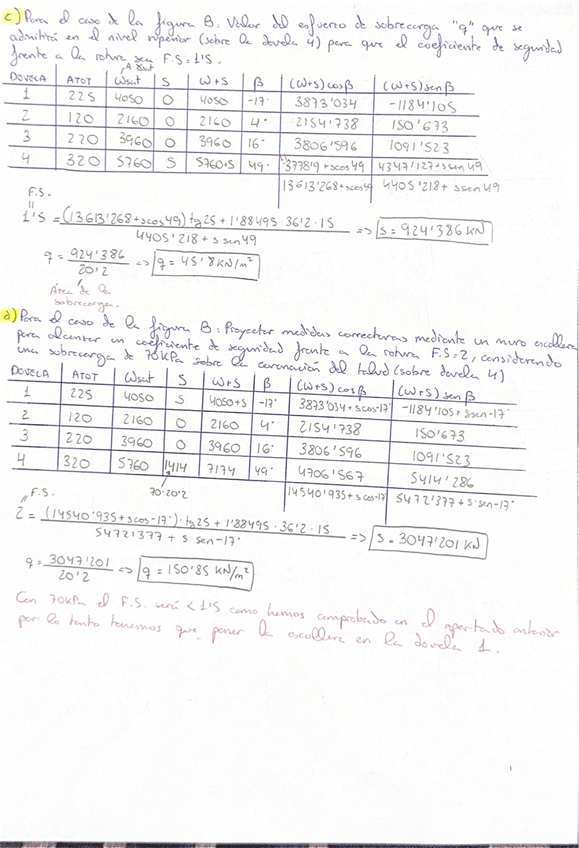 c) Para el caso de la figura B: Valor del esfuerzo de sobrecarga "q" que se
admitirá en el nivel superior (sobre la dovela 4) para que el coeficiente de seguridad
frente a la rotura sea F.S=1'5.
A·γsat
DOVELA ATOT Wsat S W+S β (W+S)cosβ (W+S)senβ
1 225 4050 0 4050 -17° 3873'034 -1184'105
2 120 2160 0 2160 4° 2154'738 150'673
3 220 3960 0 3960 16° 3806'596 1091'523
4 320 5760 S 5760+S 49° 3778'9+scos49 4347'127+ssen49
13613'268+scos49 4405'218+ssen49
F.S.
"
1'5 = (13613'268+scos49) tg25 + 1'88495·36'2·15 / 4405'218 + s sen49 => s = 924'386 KN
q = 924'386 / 20'2 => q = 45'8 KN/m²
Área de la
sobrecarga.
d) Para el caso de la figura B: Proyectar medidas correctoras mediante un muro escollera
para alcanzar un coeficiente de seguridad frente a la rotura F.S=2, considerando
una sobrecarga de 70kPa sobre la coronación del talud (sobre dovela 4)
DOVELA ATOT Wsat S W+S β (W+S)cosβ (W+S)senβ
1 225 4050 S 4050+S -17° 3873'034+scos-17° -1184'105+ssen-17°
2 120 2160 0 2160 4° 2154'738 150'673
3 220 3960 0 3960 16° 3806'596 1091'523
4 320 5760 1414 7174 49° 4706'567 5414'286
70·20'2 14540'935+scos-17° 5472'377+s·sen-17°
" F.S.
2 = (14540'935+scos-17°)·tg25 + 1'88495·36'2·15 / 5472'377 + s sen-17° => s = 3047'201 KN
q = 3047'201 / 20'2 => q = 150'85 KN/m²
Con 70kPa el F.S. será < 1'5 como hemos comprobado en el apartado anterior
por lo tanto tenemos que poner la escollera en la dovela 1.